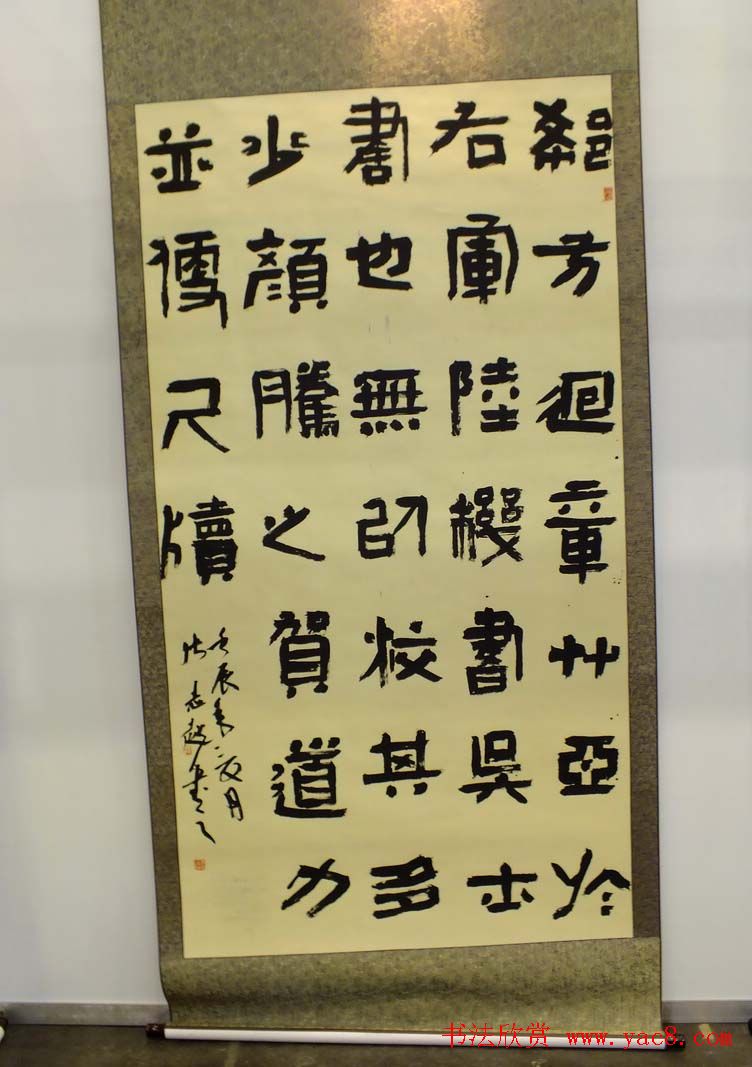 郗方迴章艸亞於
右軍陸機書吳士
書也無以校其多
少顏騰之賀道力
並便尺牘
壬辰年二月
志超書
书法欣赏 www.yac8.com